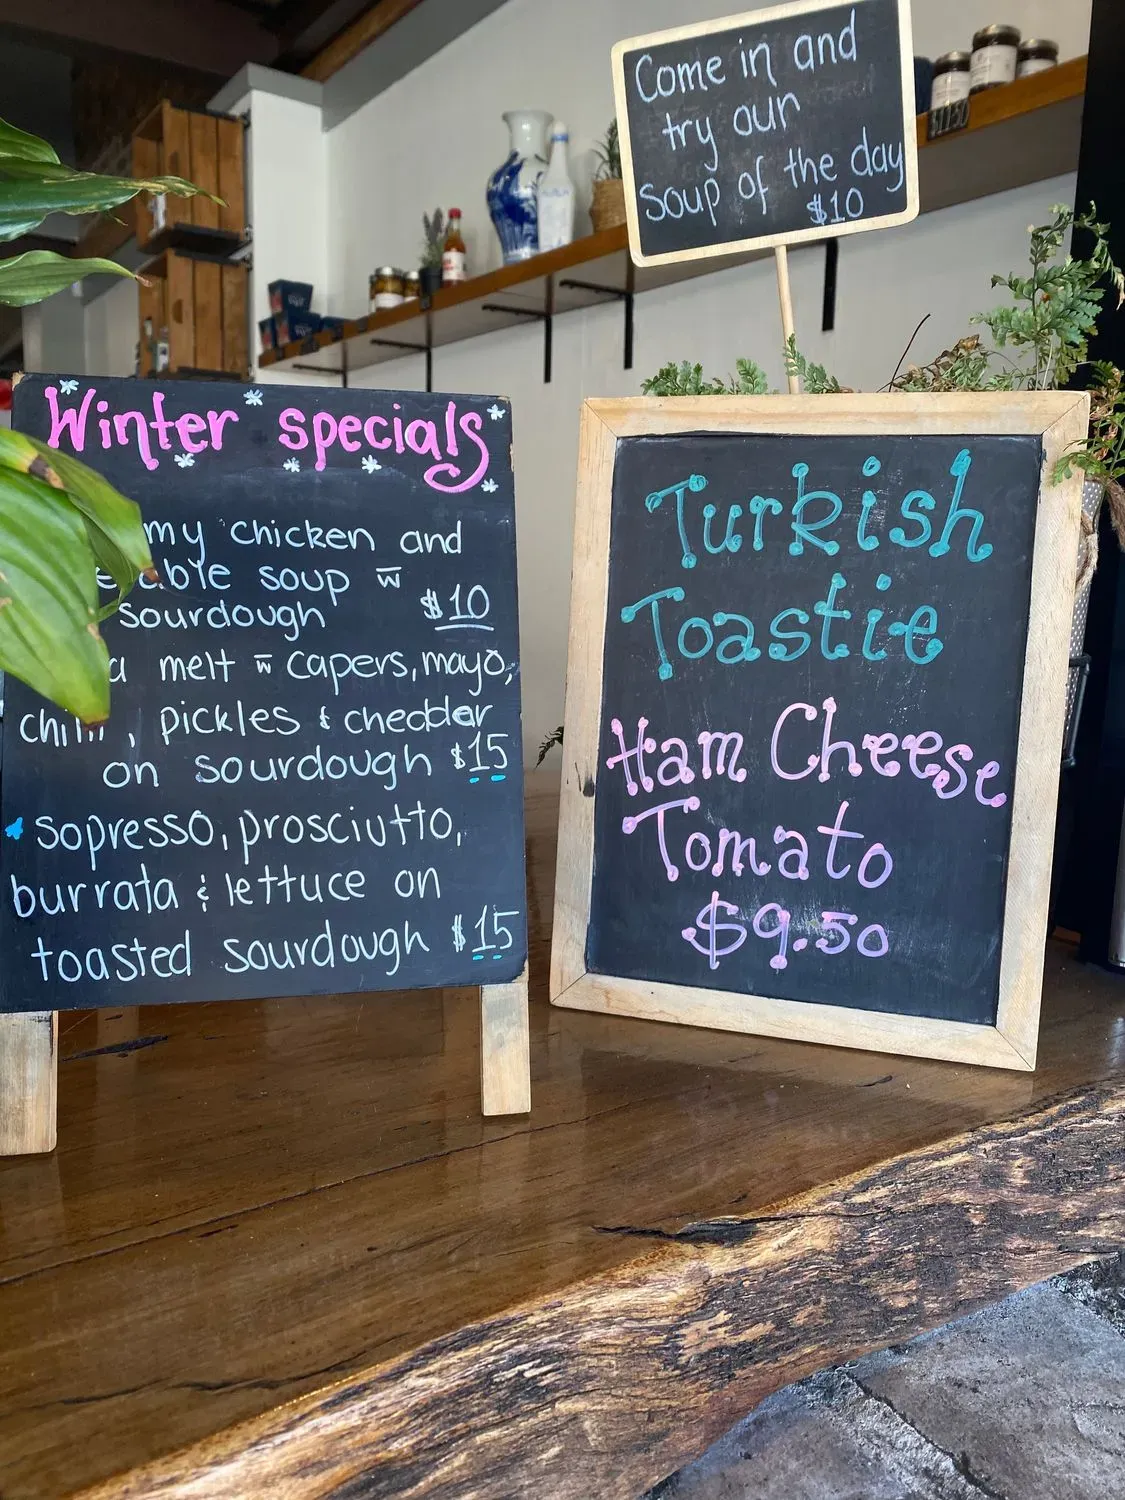 Come in and
try our
soup of the day
$10
Winter specials
my chicken and
soup w̅
sourdough $10
melt w̅ capers, mayo,
, pickles & cheddar
on sourdough $15
sopresso, prosciutto,
burrata & lettuce on
toasted sourdough $15
Turkish
Toastie
Ham Cheese
Tomato
$9.50